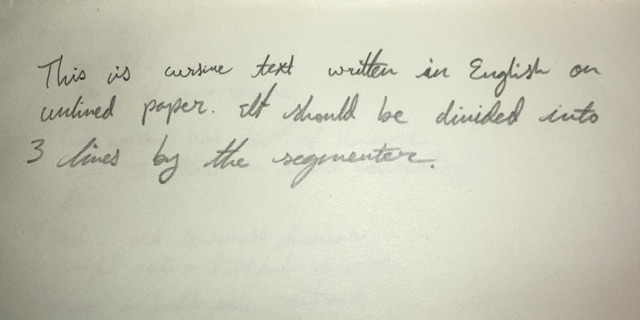 This is cursive text written in English on
unlined paper. It should be divided into
3 lines by the segmenter.